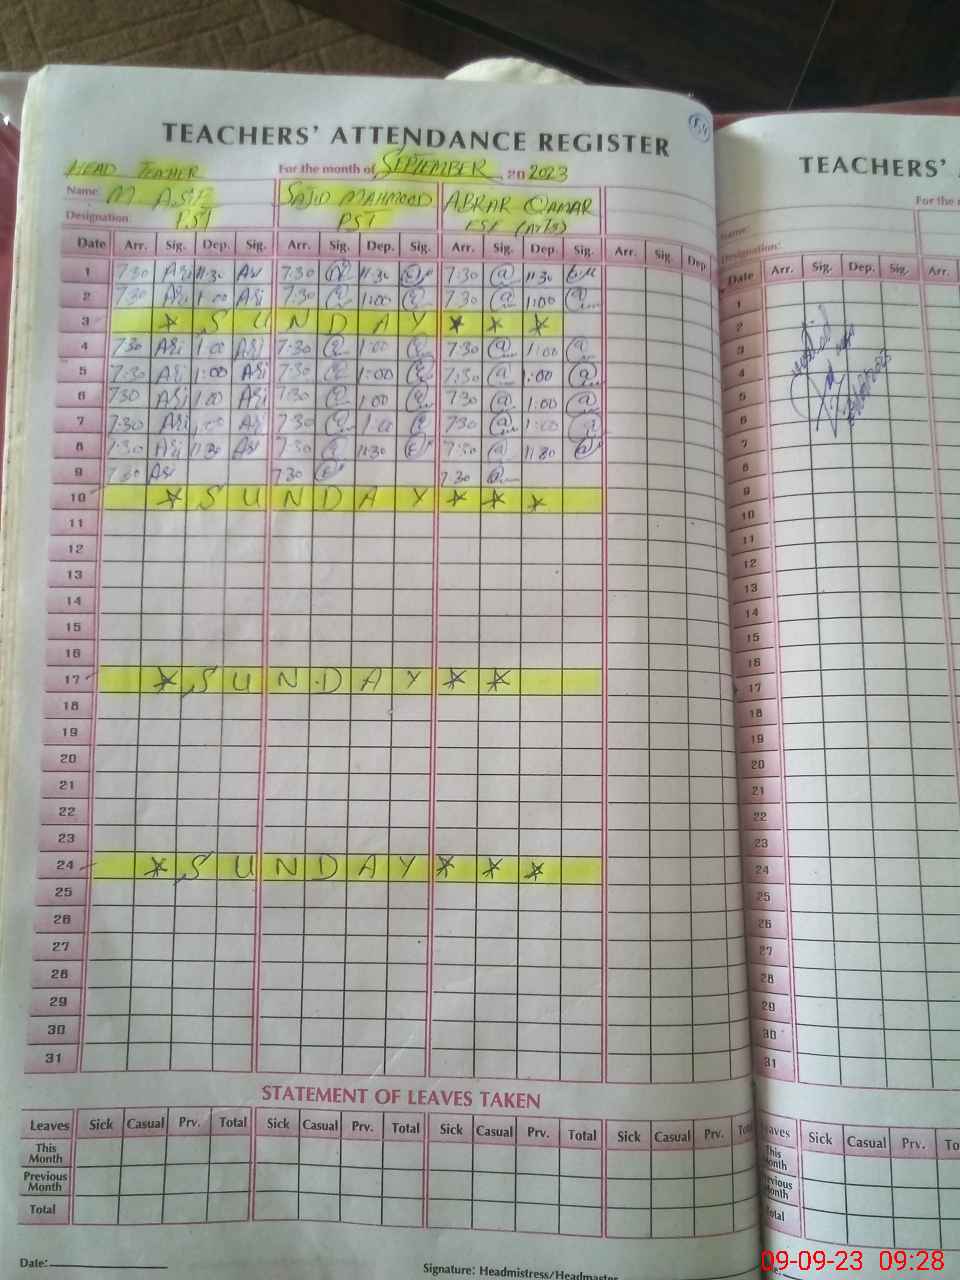 TEACHERS' ATTENDANCE REGISTER
HEAD TEACHER For the month of SEPTEMBER 20 2023
Name: M. ASIF SAJID MAHMOOD ABRAR QAMAR
Designation: PST PST
Date Arr. Sig. Dep. Sig. Arr. Sig. Dep. Sig. Arr. Sig. Dep. Sig. Arr. Sig. Dep.
1 7:30 11:30 7:30 11:30 7:30 11:30
2 7:30 1:00 7:30 1:00 7:30 1:00
3 * S U N D A Y * * *
4 7:30 1:00 7:30 1:00 7:30 1:00
5 7:30 1:00 7:30 1:00 7:30 1:00
6 7:30 1:00 7:30 1:00 7:30 1:00
7 7:30 1:00 7:30 1:00 7:30 1:00
8 7:30 11:30 7:30 11:30 7:30 11:30
9 7:30 7:30 7:30
10 * S U N D A Y * * *
11
12
13
14
15
16
17 * S U N D A Y * *
18
19
20
21
22
23
24 * S U N D A Y * * *
25
26
27
28
29
30
31
STATEMENT OF LEAVES TAKEN
Leaves Sick Casual Prv. Total Sick Casual Prv. Total Sick Casual Prv. Total Sick Casual Prv.
This Month
Previous Month
Total
Date:
Signature: Headmistress/Headmaster
TEACHERS'
For the
Name:
Designation:
Date Arr. Sig. Dep. Sig. Arr.
1
2
3
4
5
6
7
8
9
10
11
12
13
14
15
16
17
18
19
20
21
22
23
24
25
26
27
28
29
30
31
Sick Casual Prv.
09-09-23 09:28